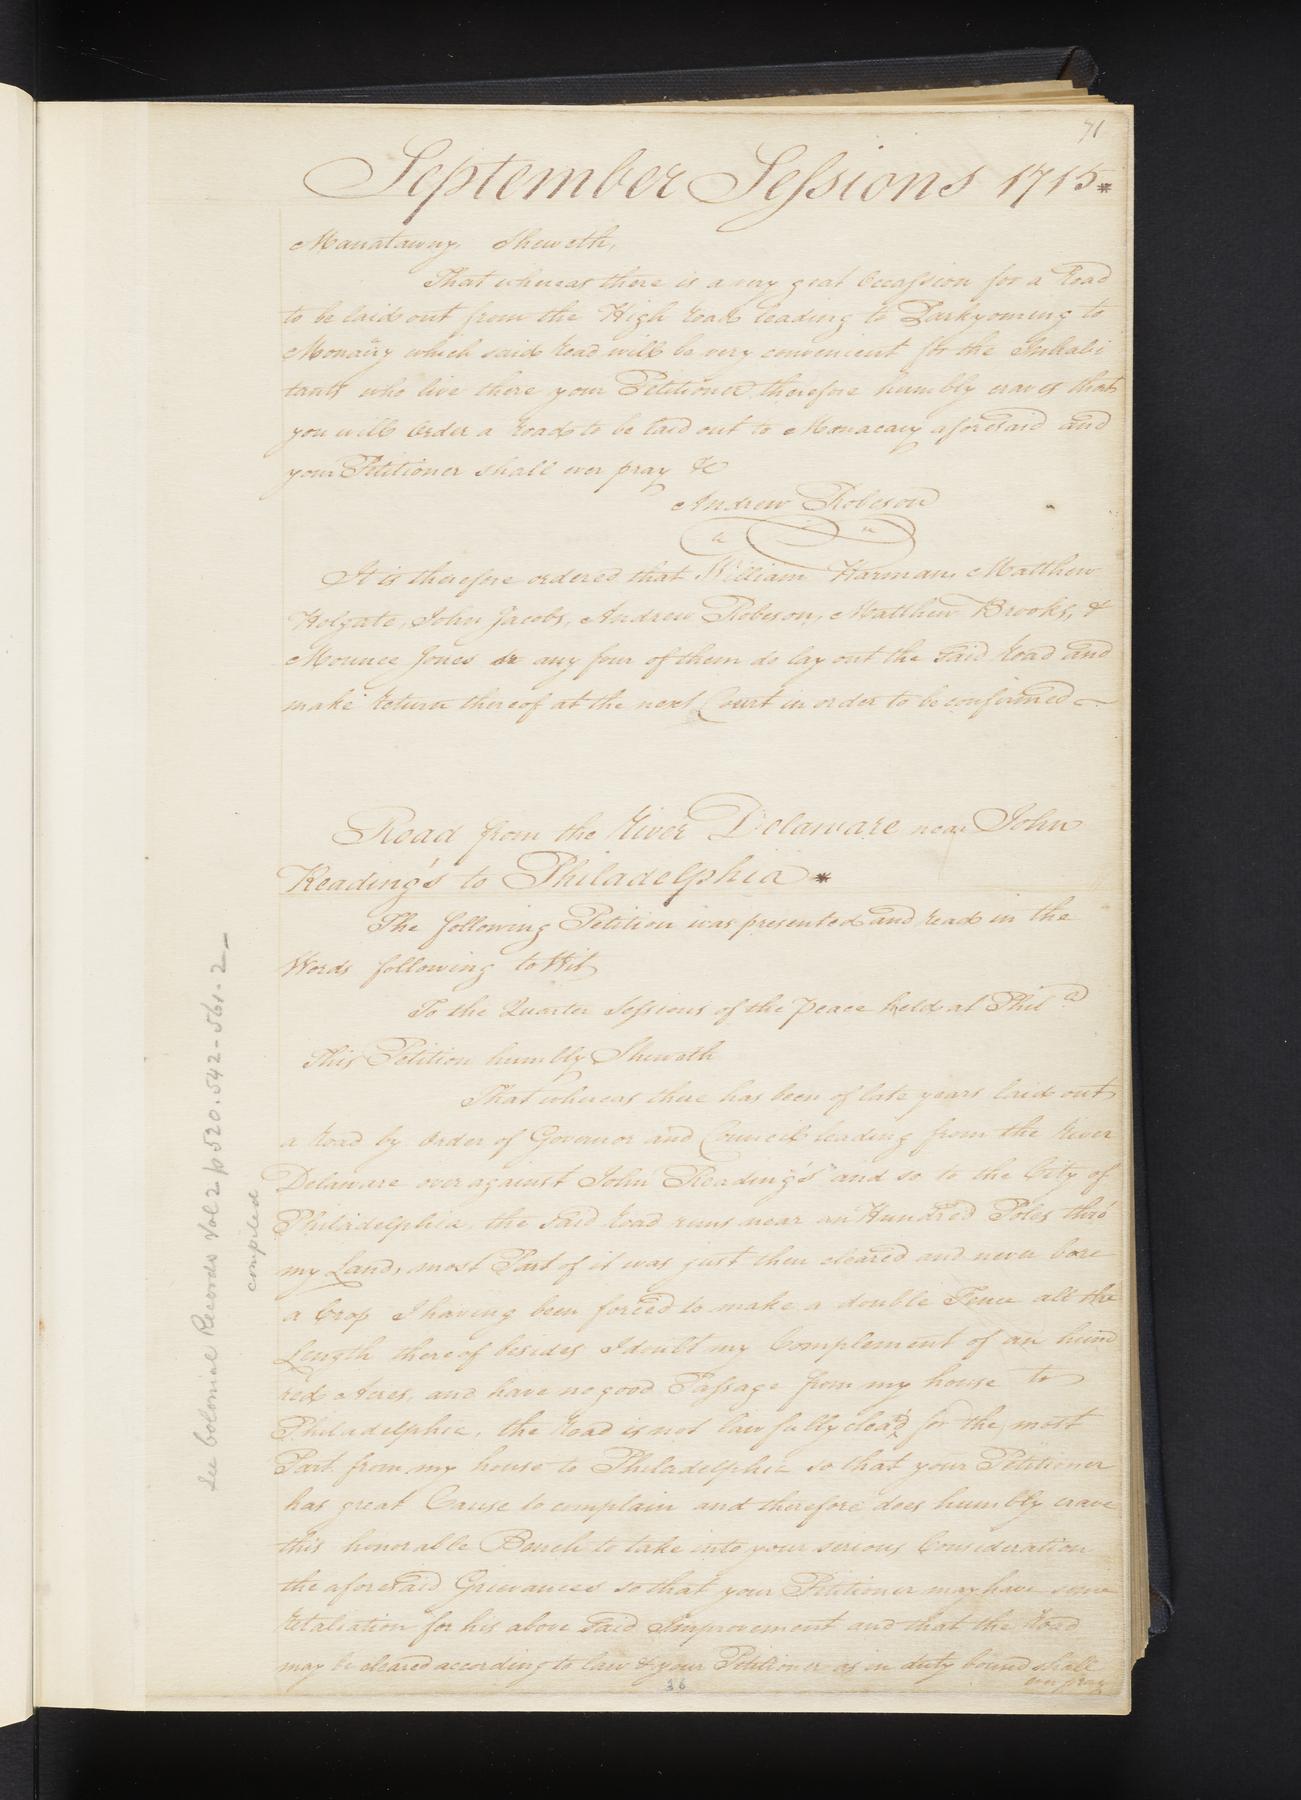 71
September Sessions 1715*
Manatawny Sheweth,
That whereas there is a very great Occassion for a Road
to be laid out from the High Road leading to Parkyoming to
which said Road will be very convenient for the Inhabi
tants who live there your Petitioner therefore humbly craves that
you will Order a Road to be laid out to Monacacy aforesaid and
your Petitioner shall ever pray &c
Andrew Robeson
It is therefore ordered that William Harman, Matthew
Holgate, John Jacobs, Andrew Robeson, Matthew Brooks, &
Mounce Jones or any four of them do lay out the said Road and
make Return thereof at the next Court in order to be confirmed
Road from the River Delaware near John
Reading's to Philadelphia *
The following Petition was presented and read in the
Words following to Wit
To the Quarter Sessions of the Peace held at Phila
This Petition humbly Sheweth
That whereas there has been of late years laid out
a Road by Order of Governor and Council leading from the River
Delaware over against John Reading's and so to the City of
Philadelphia, the said Road runs near an Hundred Poles thro'
my Land, most Part of it was just then cleared and never bore
a Crop I having been forced to make a double Fence all the
Length thereof besides I doubt my Complement of an hund
red Acres, and have no good Passage from my house to
Philadelphia, the Road is not lawfully clea'd for the most
Part from my house to Philadelphia so that your Petitioner
has great Cause to complain and therefore does humbly crave
this honorable Bench to take into your serious Consideration
the aforesaid Grievances so that your Petitioner may have some
Retaliation for his above said Improvement and that the Road
may be cleared according to law & your Petitioner as in duty bound shall
ever pray
36
See Colonial Records Vol 2 p 520. 542-561-2
compiled